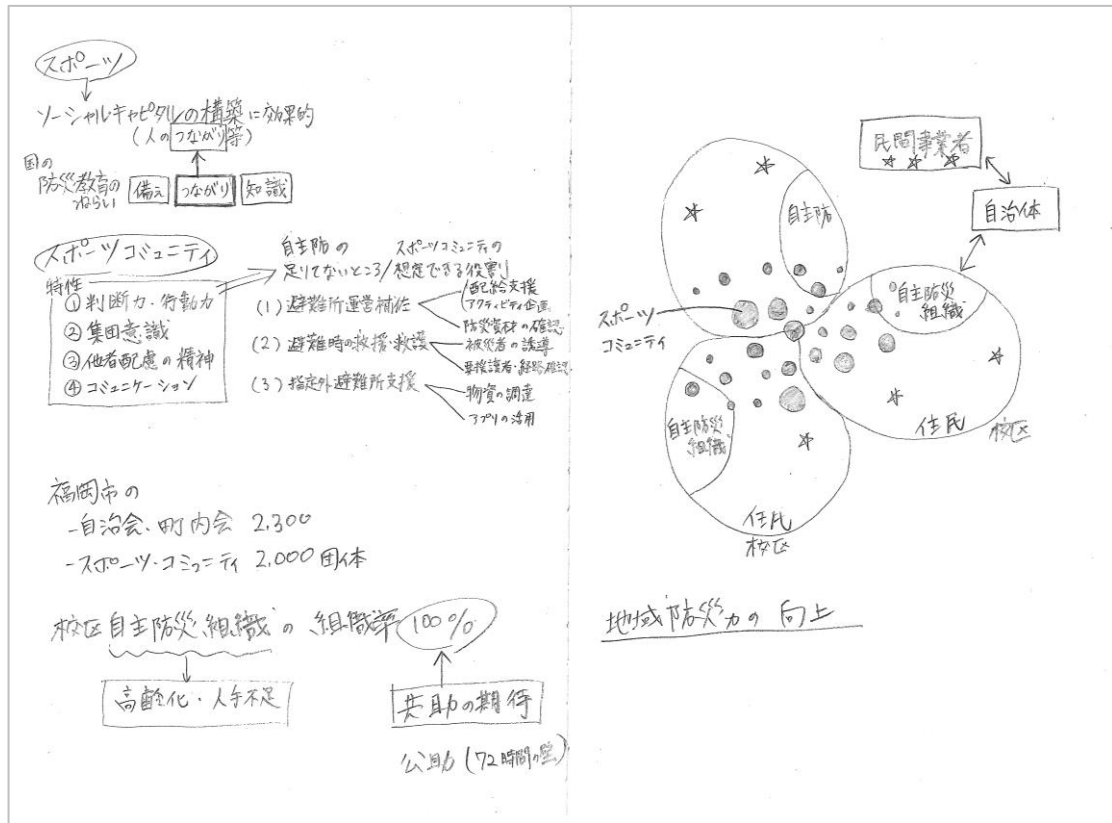 スポーツ
ソーシャルキャピタルの構築に効果的
(人のつながり等)
国の
防災教育の
ねらい
備え つながり 知識
スポーツコミュニティ
特性
① 判断力・行動力
② 集団意識
③ 他者配慮の精神
④ コミュニケーション
自主防の
足りてないところ/
スポーツコミュニティの
想定できる役割
(1) 避難所運営補佐
配給支援
アクティビティ企画
防災資材の確認
(2) 避難時の救援・救護
被災者の誘導
要援護者・経路確認
(3) 指定外避難所支援
物資の調達
アプリの活用
福岡市の
-自治会・町内会 2,300
-スポーツ・コミュニティ 2,000団体
校区自主防災組織の組織率 100%
高齢化・人手不足
共助の期待
公助 (72時間の壁)
民間事業者
自治体
自主防
自主防災
組織
スポーツ
コミュニティ
住民
校区
自主防災
組織
住民
校区
地域防災力の向上